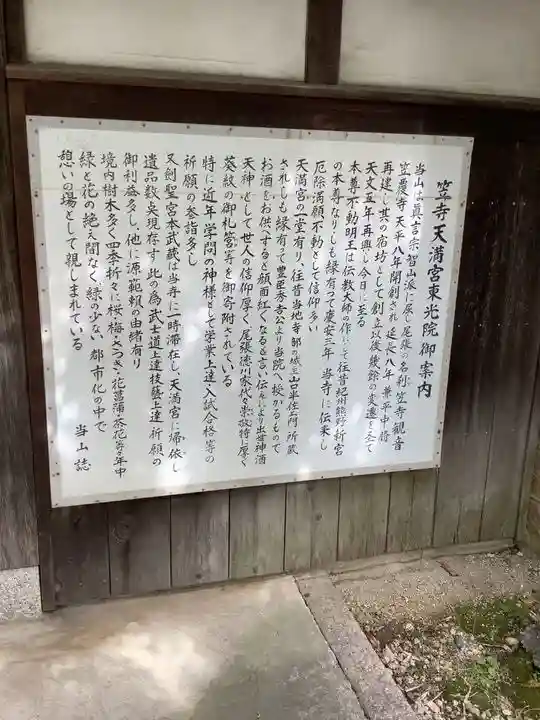 笠寺天満宮東光院御案内
当山は真言宗智山派に属し尾張の名刹笠寺観音
笠覆寺天平八年開創され延長八年兼平中将
再建し其の宿坊として創立以後幾多の変遷を至て
天文五年再興し今日に至る
本尊不動明王は伝教大師の作にして往昔紀州熊野新宮
の本尊なりしも縁有って慶安三年当寺に伝来し
厄除満願不動として信仰多い
天満宮の一堂有り、往昔当地寺部の城主山口半左ェ門所蔵
されしも縁有て豊臣秀吉公より当院へ授かるもので
お酒をお供へすると顔面紅くなると言い伝えにより出世神酒
天神として世人の信仰厚く尾張徳川家代々崇敬特に厚く
葵紋の御札箱等を御寄附されている
特に近年学問の神様として学業上達入試合格等の
祈願の参詣多し
又剣聖宮本武蔵は当寺に一時滞在し、天満宮に帰依し
遺品数点現存す此の為武士道上達技藝上達祈願の
御利益多し、他に源範頼の由緒有り
境内樹木多く四季折々に桜・梅・さつき・花菖蒲・茶花等々年中
緑と花の絶え間なく緑の少ない都市化の中で
憩いの場として親しまれている
当山誌